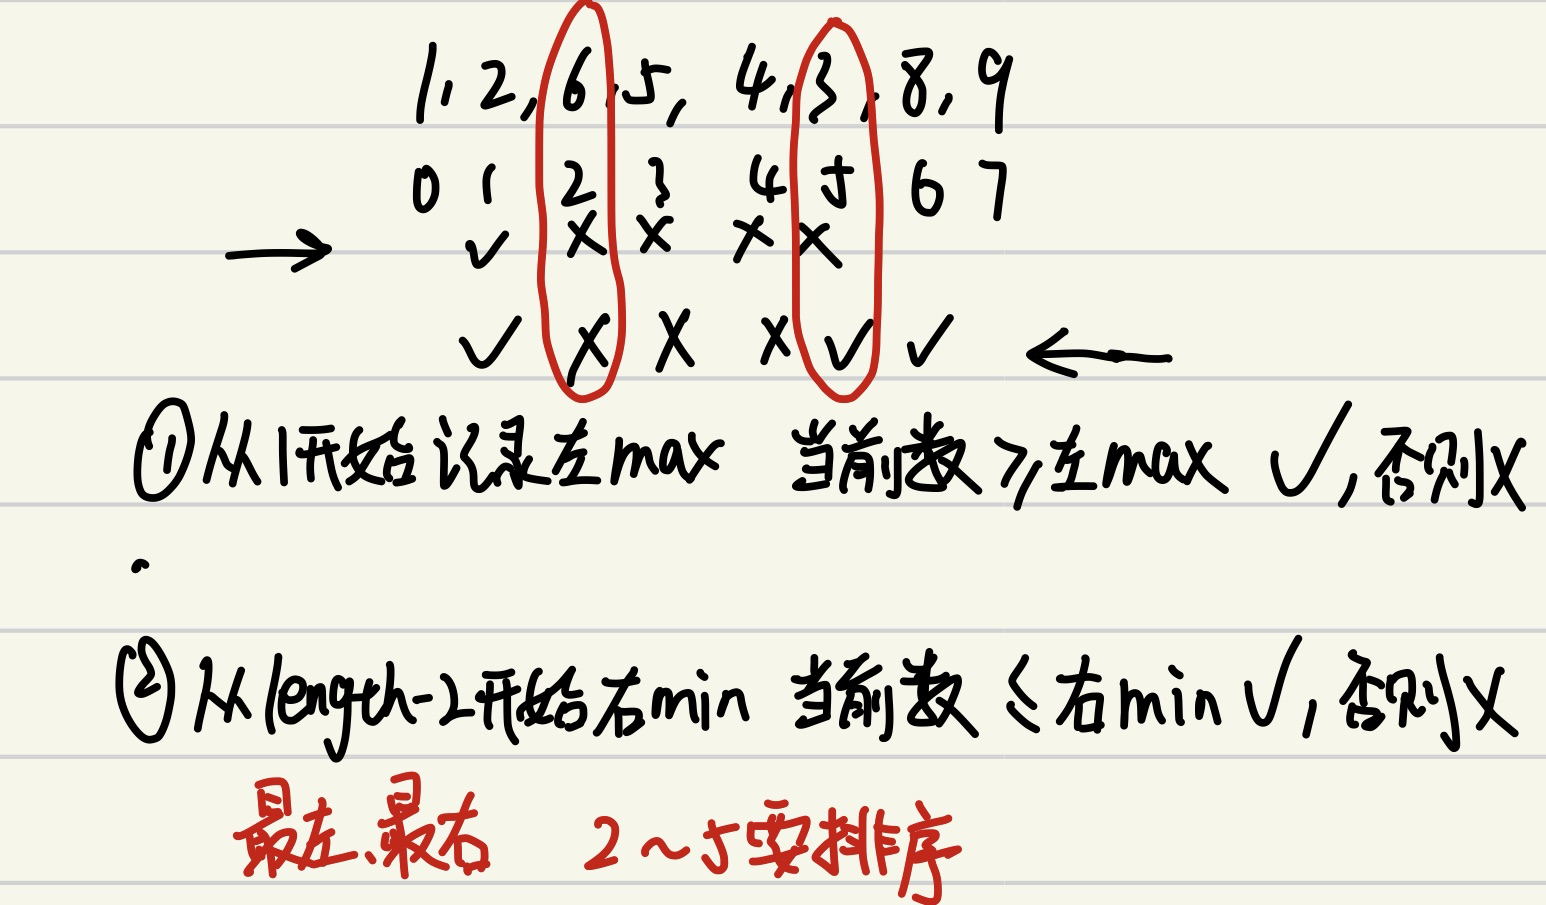 1, 2, 6, 5, 4, 3, 8, 9
0 1 2 3 4 5 6 7
→ ✓ X X X X
✓ X X X ✓ ✓ ←
① 从1开始记录左max 当前数≥左max ✓, 否则X
② 从length-2开始右min 当前数≤右min ✓, 否则X
最左、最右 2~5要排序